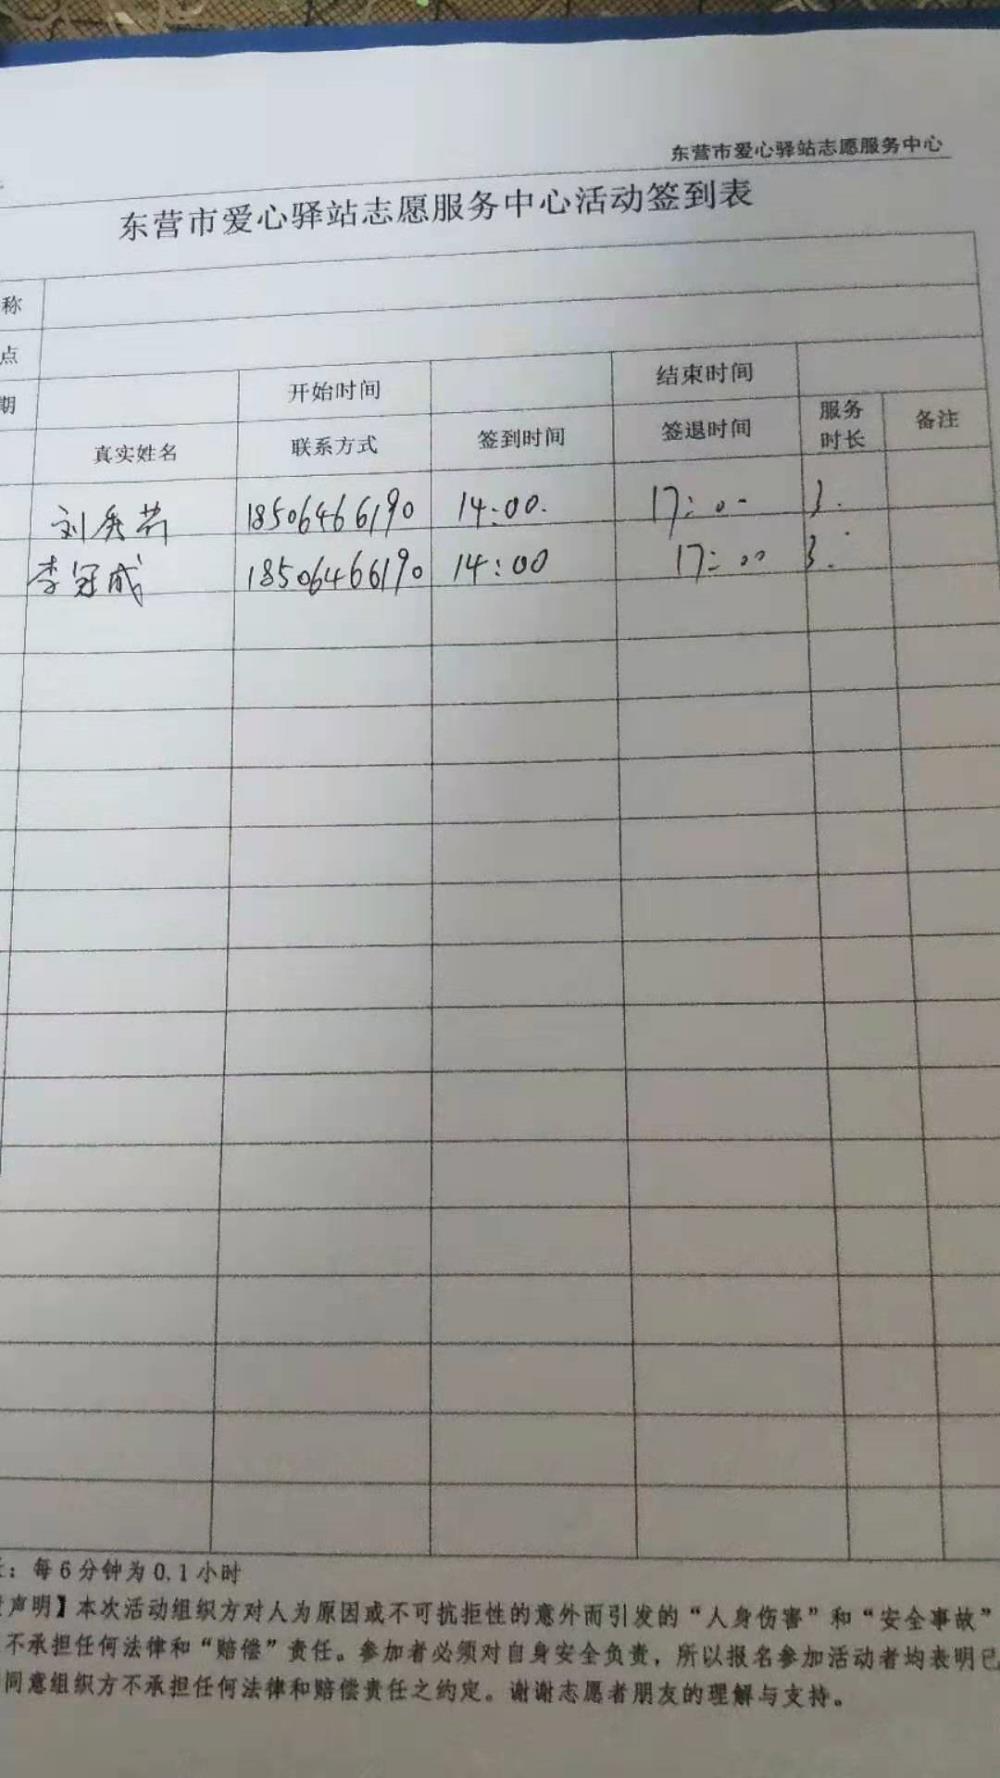 东营市爱心驿站志愿服务中心
东营市爱心驿站志愿服务中心活动签到表
称
点
期 开始时间 结束时间
真实姓名 联系方式 签到时间 签退时间 服务时长 备注
刘 18506466190 14:00. 17:00 3.
李冠成 18506466190 14:00 17:00 3.
：每6分钟为0.1小时
声明】本次活动组织方对人为原因或不可抗拒性的意外而引发的“人身伤害”和“安全事故”
不承担任何法律和“赔偿”责任。参加者必须对自身安全负责，所以报名参加活动者均表明已
同意组织方不承担任何法律和赔偿责任之约定。谢谢志愿者朋友的理解与支持。